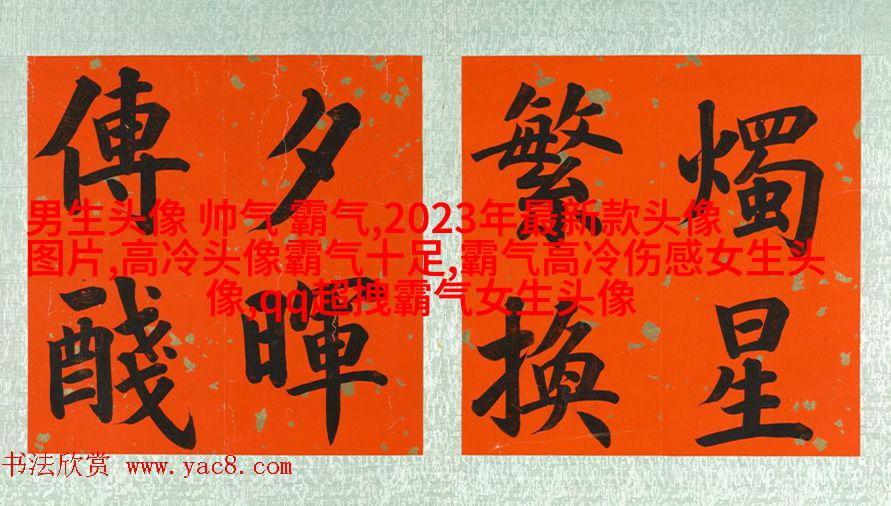 燭星
繁換
夕暉
傳醆
男生头像 帅气 霸气,2023年最新款头像
图片,高冷头像霸气十足,霸气高冷伤感女生头
像,qq超拽霸气女生头像
书法欣赏 www.yac8.com